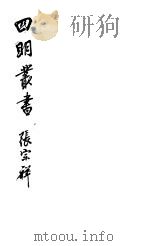 四明叢書
張宗祥
mtoou.info